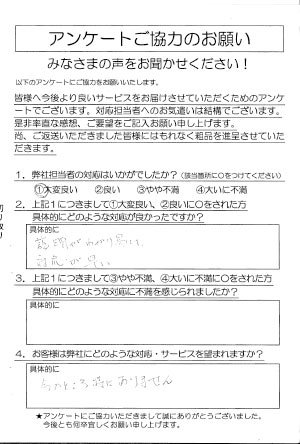 アンケートご協力のお願い
みなさまの声をお聞かせください！
以下のアンケートにご協力をお願いいたします。
皆様へ今後より良いサービスをお届けさせていただくためのアンケートでございます。対応担当者へのお気遣いは結構でございます。
是非率直な感想、ご要望をご記入お願い申し上げます。
尚、ご返送いただきました皆様にはもれなく粗品を進呈させていただきます。
1．弊社担当者の対応はいかがでしたか？（該当箇所に○をつけてください）
①大変良い　②良い　③やや不満　④大いに不満
2．上記１につきまして①大変良い、②良いに○をされた方
具体的にどのような対応が良かったですか？
具体的に
説明がわかり易い
対応が早い
3．上記１につきまして③やや不満、④大いに不満に○をされた方
具体的にどのような対応に不満を感じられましたか？
具体的に
4．お客様は弊社にどのような対応・サービスを望まれますか？
具体的に
今のところ特にありません
★アンケートにご協力いただきまして誠にありがとうございました。
今後とも何卒宜しくお願い申し上げます。